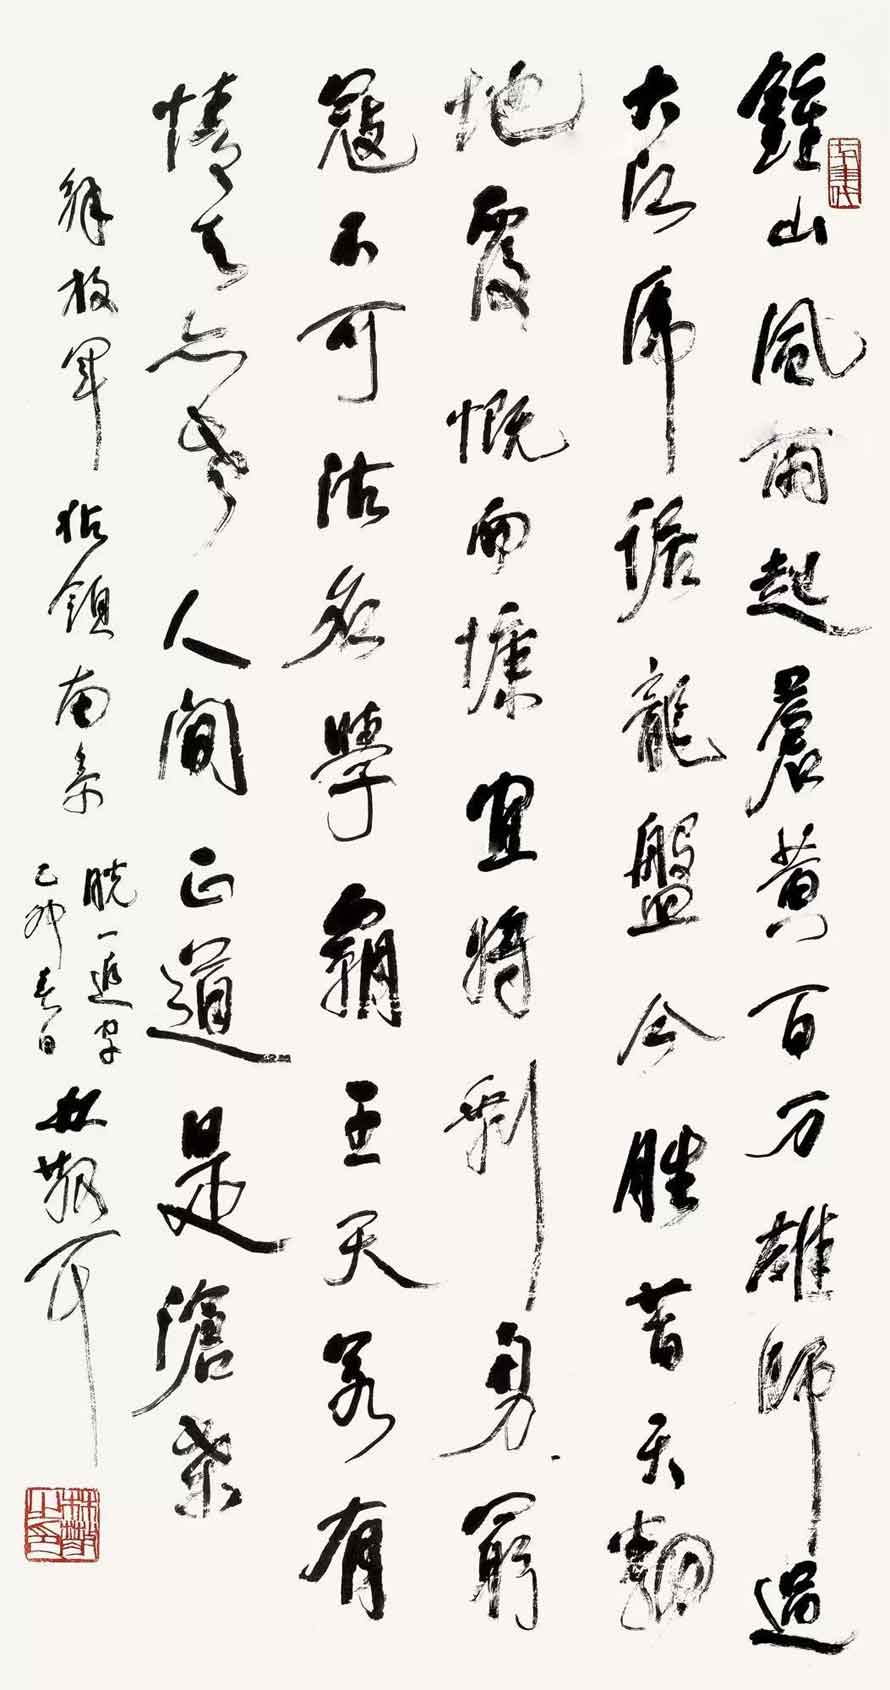 鍾山風雨起蒼黃百万雄師過
大江虎踞龍盤今勝昔天翻
地覆慨而慷宜將剩勇窮
寇不可沽名學霸王天若有
情天亦老人間正道是滄桑
解放軍佔領南京
脫一追字
乙卯春日
林散耳
林散之印